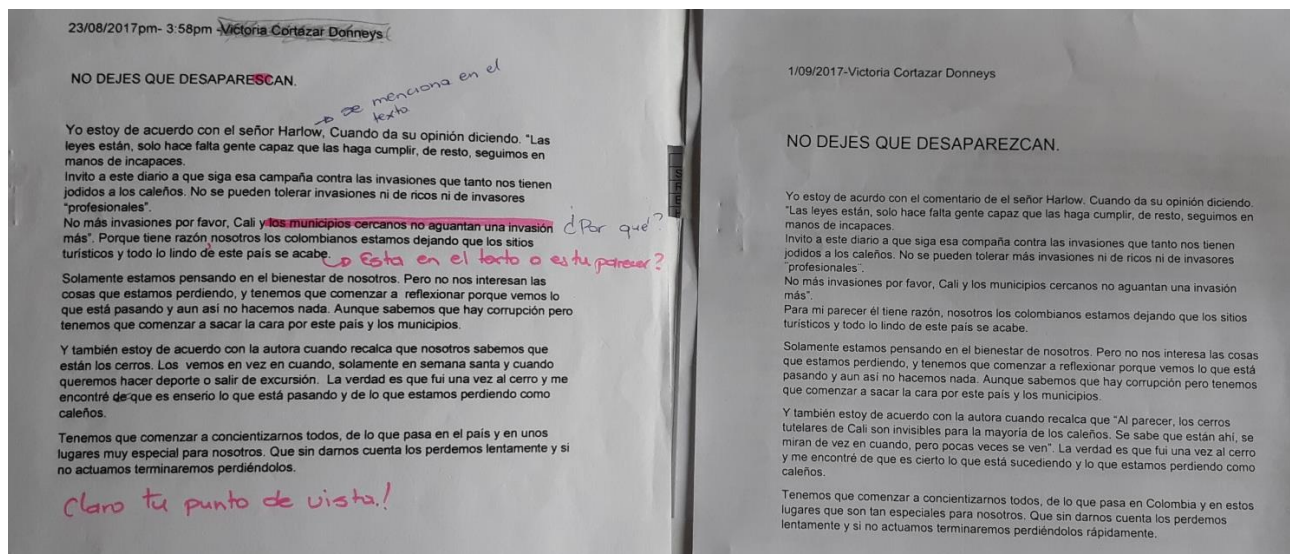 23/08/2017pm- 3:58pm -Victoria Cortázar Donneys
NO DEJES QUE DESAPARESCAN.
se menciona en el
texto
Yo estoy de acuerdo con el señor Harlow, Cuando da su opinión diciendo. “Las
leyes están, solo hace falta gente capaz que las haga cumplir, de resto, seguimos en
manos de incapaces.
Invito a este diario a que siga esa campaña contra las invasiones que tanto nos tienen
jodidos a los caleños. No se pueden tolerar invasiones ni de ricos ni de invasores
“profesionales”.
No más invasiones por favor, Cali y los municipios cercanos no aguantan una invasión ¿Por qué?
más”. Porque tiene razón nosotros los colombianos estamos dejando que los sitios
turísticos y todo lo lindo de este país se acabe. Esta en el texto o es tu parecer?
Solamente estamos pensando en el bienestar de nosotros. Pero no nos interesan las
cosas que estamos perdiendo, y tenemos que comenzar a reflexionar porque vemos lo
que está pasando y aun así no hacemos nada. Aunque sabemos que hay corrupción pero
tenemos que comenzar a sacar la cara por este país y los municipios.
Y también estoy de acuerdo con la autora cuando recalca que nosotros sabemos que
están los cerros. Los vemos en vez en cuando, solamente en semana santa y cuando
queremos hacer deporte o salir de excursión. La verdad es que fui una vez al cerro y me
encontré de que es enserio lo que está pasando y de lo que estamos perdiendo como
caleños.
Tenemos que comenzar a concientizarnos todos, de lo que pasa en el país y en unos
lugares muy especial para nosotros. Que sin darnos cuenta los perdemos lentamente y si
no actuamos terminaremos perdiéndolos.
Claro tu punto de vista!
1/09/2017-Victoria Cortazar Donneys
NO DEJES QUE DESAPAREZCAN.
Yo estoy de acurdo con el comentario de el señor Harlow. Cuando da su opinión diciendo.
“Las leyes están, solo hace falta gente capaz que las haga cumplir, de resto, seguimos en
manos de incapaces.
Invito a este diario a que siga esa compaña contra las invasiones que tanto nos tienen
jodidos a los caleños. No se pueden tolerar más invasiones ni de ricos ni de invasores
“profesionales”.
No más invasiones por favor, Cali y los municipios cercanos no aguantan una invasión
más”.
Para mi parecer él tiene razón, nosotros los colombianos estamos dejando que los sitios
turísticos y todo lo lindo de este país se acabe.
Solamente estamos pensando en el bienestar de nosotros. Pero no nos interesa las cosas
que estamos perdiendo, y tenemos que comenzar a reflexionar porque vemos lo que está
pasando y aun así no hacemos nada. Aunque sabemos que hay corrupción pero tenemos
que comenzar a sacar la cara por este país y los municipios.
Y también estoy de acuerdo con la autora cuando recalca que “Al parecer, los cerros
tutelares de Cali son invisibles para la mayoría de los caleños. Se sabe que están ahí, se
miran de vez en cuando, pero pocas veces se ven”. La verdad es que fui una vez al cerro
y me encontré de que es cierto lo que está sucediendo y lo que estamos perdiendo como
caleños.
Tenemos que comenzar a concientizarnos todos, de lo que pasa en Colombia y en estos
lugares que son tan especiales para nosotros. Que sin darnos cuenta los perdemos
lentamente y si no actuamos terminaremos perdiéndolos rápidamente.